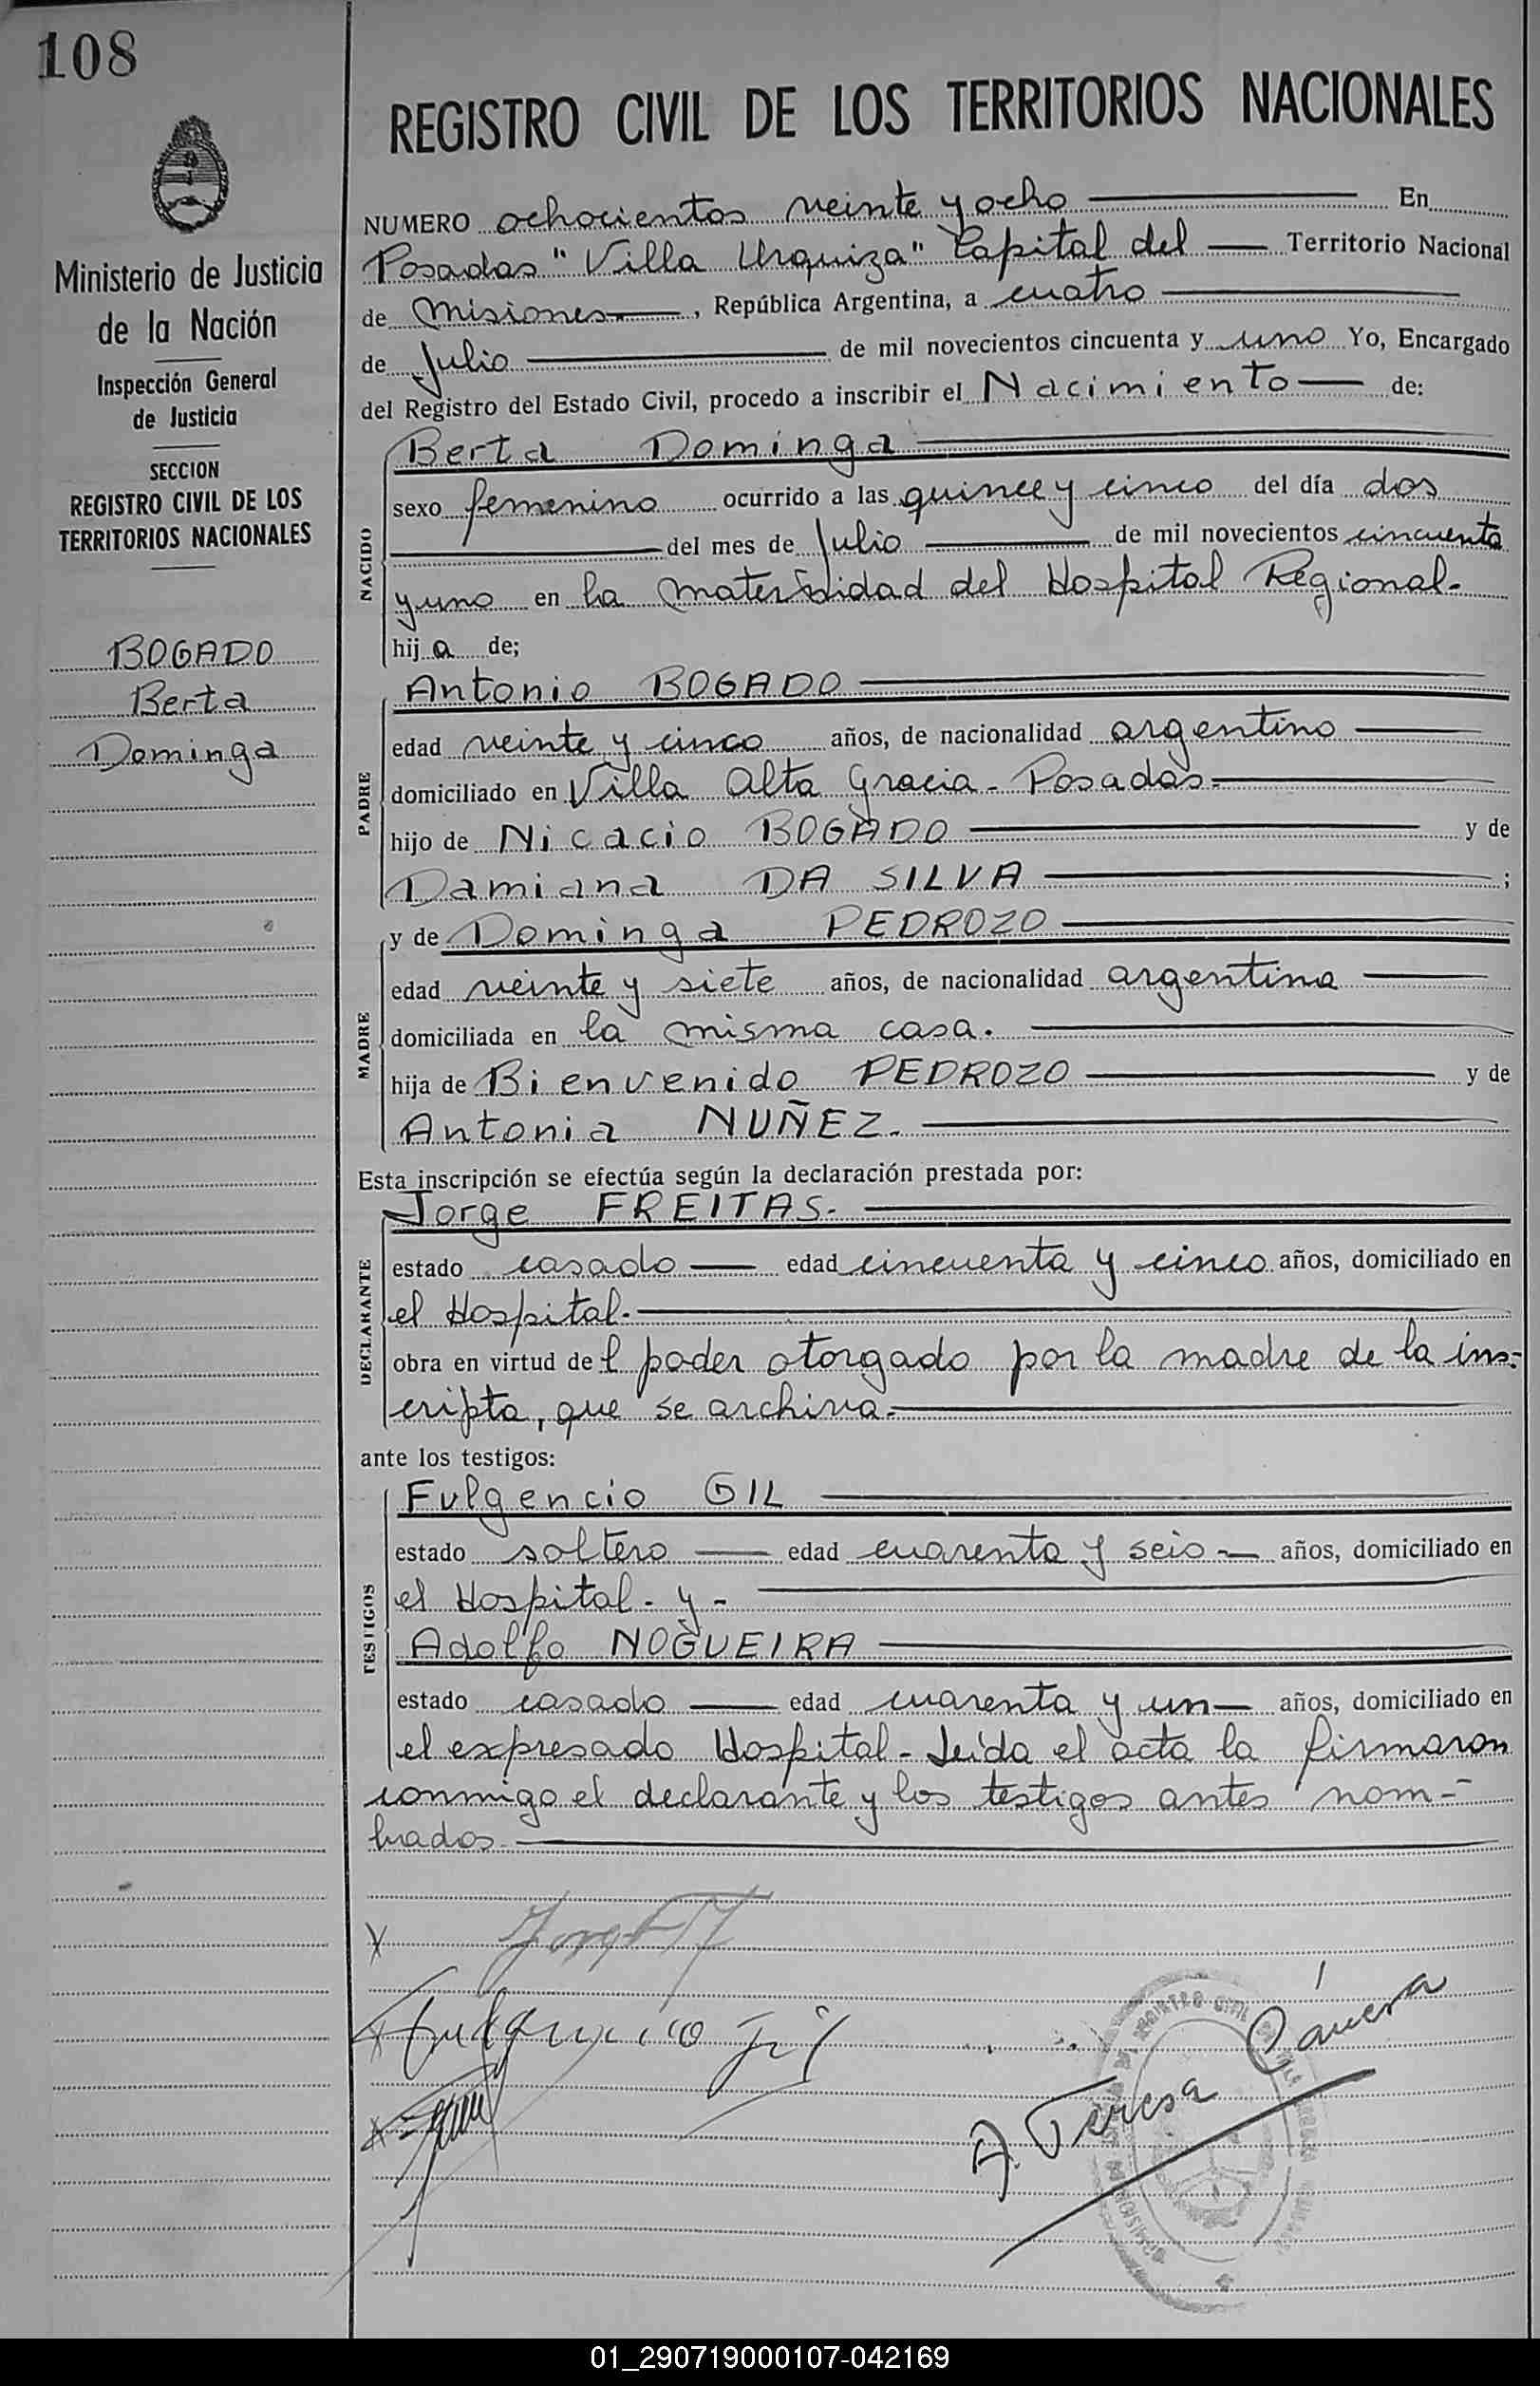 108
REGISTRO CIVIL DE LOS TERRITORIOS NACIONALES
Ministerio de Justicia
de la Nación
Inspección General
de Justicia
SECCION
REGISTRO CIVIL DE LOS
TERRITORIOS NACIONALES
BOGADO
Berta
Dominga
NUMERO ochocientos veinte y ocho En
Posadas "Villa Urquiza" Capital del Territorio Nacional
de Misiones, República Argentina, a cuatro
de Julio de mil novecientos cincuenta y uno Yo, Encargado
del Registro del Estado Civil, procedo a inscribir el Nacimiento de:
NACIDO
Berta Dominga
sexo femenino ocurrido a las quince y cinco del día dos
del mes de Julio de mil novecientos cincuenta
y uno en la maternidad del Hospital Regional.-
hija de;
PADRE
Antonio BOGADO
edad veinte y cinco años, de nacionalidad argentino
domiciliado en Villa Alta Gracia - Posadas.-
hijo de Nicacio BOGADO y de
Damiana DA SILVA ;
MADRE
y de Dominga PEDROZO
edad veinte y siete años, de nacionalidad argentina
domiciliada en la misma casa.
hija de Bienvenido PEDROZO y de
Antonia NUÑEZ.
Esta inscripción se efectúa según la declaración prestada por:
DECLARANTE
Jorge FREITAS.-
estado casado edad cincuenta y cinco años, domiciliado en
el Hospital.-
obra en virtud del poder otorgado por la madre de la ins-
cripta, que se archiva.-
ante los testigos:
TESTIGOS
Fulgencio GIL
estado soltero edad cuarenta y seis años, domiciliado en
el Hospital - y -
Adolfo NOGUEIRA
estado casado edad cuarenta y un años, domiciliado en
el expresado Hospital - Leida el acta la firmaron
conmigo el declarante y los testigos antes nom-
brados.
Fulgencio Gil
A. Teresa Cánera
01_290719000107-042169